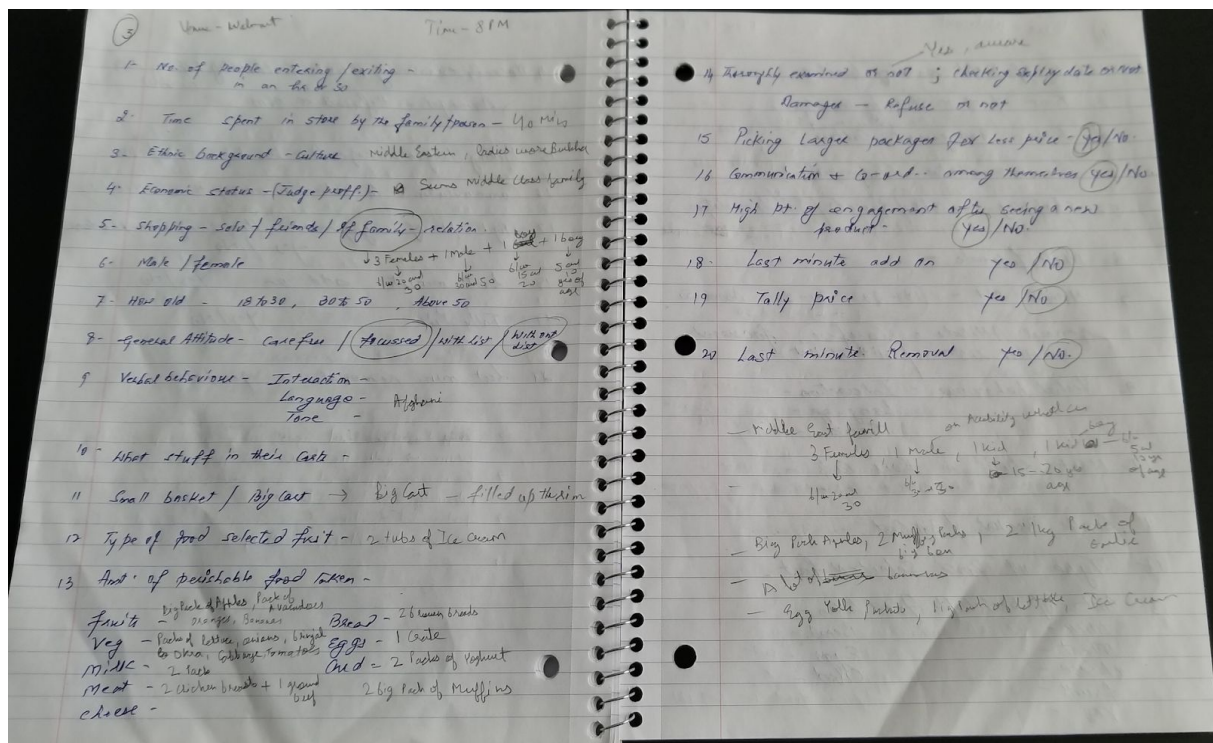 5 Venue - Walmart Time - 8 PM
1- No. of people entering / exiting -
in an hr or 30
2- Time spent in store by the family/person - 40 Mins
3- Ethnic background - Culture Middle Eastern, ladies wore
4- Economic status - (Judge proff.) - Seems Middle Class family
5- Shopping - solo / friends / family - relation
6- Male / female
↓ 3 Females + 1 Male + 1 boy + 1 boy
b/w 20 and 30
b/w 30 and 50
b/w 15 and 20
5 and 10 yrs of age
7- How old - 18 to 30, 30 to 50, Above 50
8- General Attitude - Care free / focussed / with list / without list
9 Verbal behaviour - Interaction -
Language - Afghani
Tone -
10- What stuff in their Carts -
11 Small basket / Big Cart → Big Cart - filled up the rim
12 Type of food selected first - 2 tubs of Ice Cream
13 Amt. of perishable food taken -
fruits - Big Pack of Apples, Pack of Avacadoes
Oranges, Bananas
Bread - 2 brown breads
Veg - Packs of lettuce, onions,
Okra, Cabbage, Tomatoes
Eggs - 1 Crate
Milk - 2 Pack
Curd = 2 Packs of Yoghurt
Meat - 2 chicken breasts + 1 ground beef
2 big Pack of Muffins
cheese -
Yes, aware
14 Thoroughly examined or not ; checking expiry date or not
Damages - Refuse or not
15 Picking Larger packages for less price - Yes/No.
16 Communication & Co-ord.. among themselves Yes/No.
17 High pt. of engagement after seeing a new
product - Yes/No.
18- Last minute add on yes / No
19 Tally price yes / No
20 Last minute Removal yes / No.
- Middle East famili on
3 Females, 1 Male, 1 kid, 1 kid boy - b/w 5 and 10 yrs of age
b/w 20 and 30
15-20 yrs age
- Big Pack Apples, 2 Muffins Packs, 2 1kg Packs of Garlic
big box
- A lot of bananas
- Egg Yolk Packets, Big Pack of Lettuce, Ice Cream